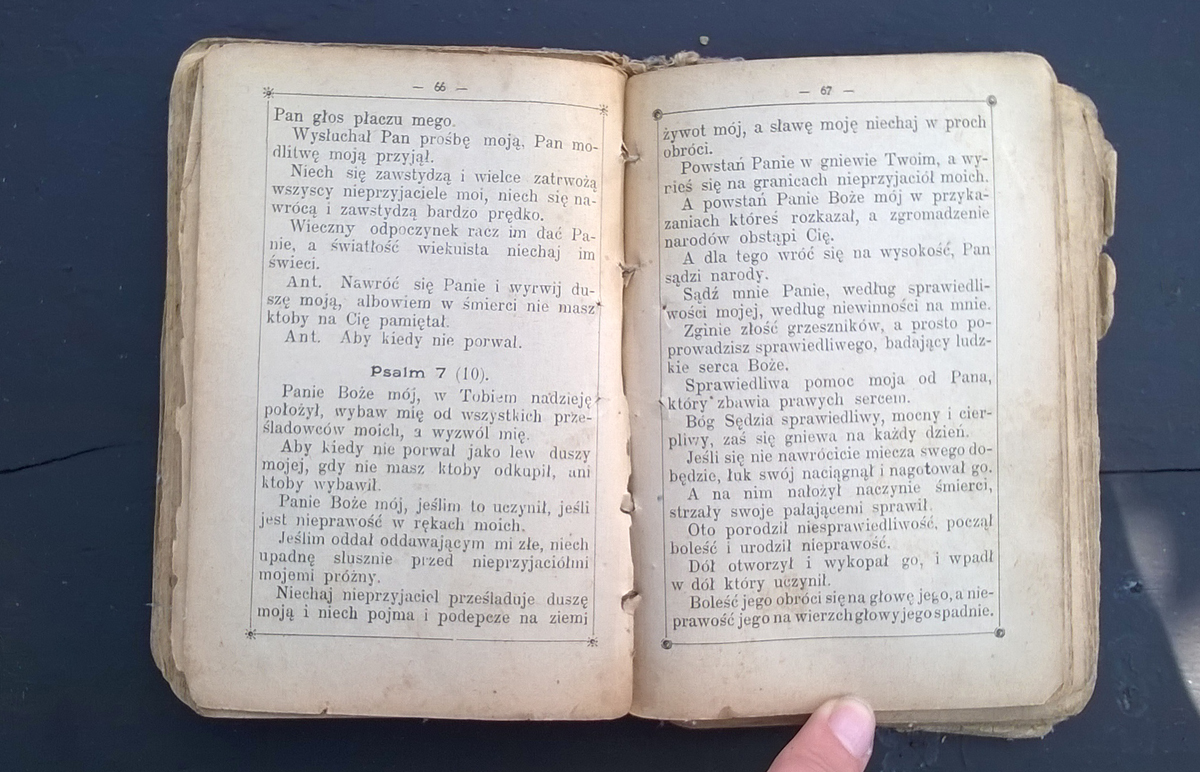 — 66 —
Pan głos płaczu mego.
Wysłuchał Pan prośbę moją, Pan mo-
dlitwę moją przyjął.
Niech się zawstydzą i wielce zatrwożą
wszyscy nieprzyjaciele moi, niech się na-
wrócą i zawstydzą bardzo prędko.
Wieczny odpoczynek racz im dać Pa-
nie, a światłość wiekuista niechaj im
świeci.
Ant. Nawróć się Panie i wyrwij du-
szę moją, albowiem w śmierci nie masz
ktoby na Cię pamiętał.
Ant. Aby kiedy nie porwał.
Psalm 7 (10).
Panie Boże mój, w Tobiem nadzieję
położył, wybaw mię od wszystkich prze-
śladowców moich, a wyzwól mię.
Aby kiedy nie porwał jako lew duszy
mojej, gdy nie masz ktoby odkupił, ani
ktoby wybawił.
Panie Boże mój, jeślim to uczynił, jeśli
jest nieprawość w rękach moich.
Jeślim oddał oddawającym mi złe, niech
upadnę słusznie przed nieprzyjaciółmi
mojemi próżny.
Niechaj nieprzyjaciel prześladuje duszę
moją i niech pojma i podepcze na ziemi
— 67 —
żywot mój, a sławę moję niechaj w proch
obróci.
Powstań Panie w gniewie Twoim, a wy-
nieś się na granicach nieprzyjaciół moich.
A powstań Panie Boże mój w przyka-
zaniach któreś rozkazał, a zgromadzenie
narodów obstąpi Cię.
A dla tego wróć się na wysokość, Pan
sądzi narody.
Sądź mnie Panie, według sprawiedli-
wości mojej, według niewinności na mnie.
Zginie złość grzeszników, a prosto po-
prowadzisz sprawiedliwego, badający ludz-
kie serca Boże.
Sprawiedliwa pomoc moja od Pana,
który zbawia prawych sercem.
Bóg Sędzia sprawiedliwy, mocny i cier-
pliwy, zaś się gniewa na każdy dzień.
Jeśli się nie nawrócicie miecza swego do-
będzie, łuk swój naciągnął i nagotował go.
A na nim nałożył naczynie śmierci,
strzały swoje pałającemi sprawił.
Oto porodził niesprawiedliwość, począł
boleść i urodził nieprawość.
Dół otworzył i wykopał go, i wpadł
w dół który uczynił.
Boleść jego obróci się na głowę jego, a nie-
prawość jego na wierzch głowy jego spadnie.